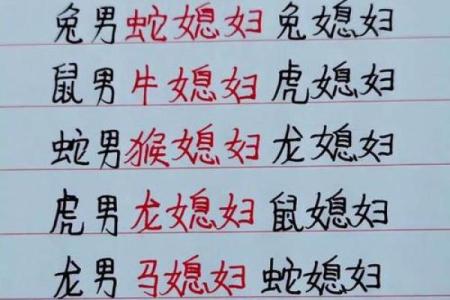 兔男蛇媳妇 兔媳妇
鼠男牛媳妇 虎媳妇
蛇男猴媳妇 龙媳妇
虎男龙媳妇 鼠媳妇
龙男马媳妇 蛇媳妇